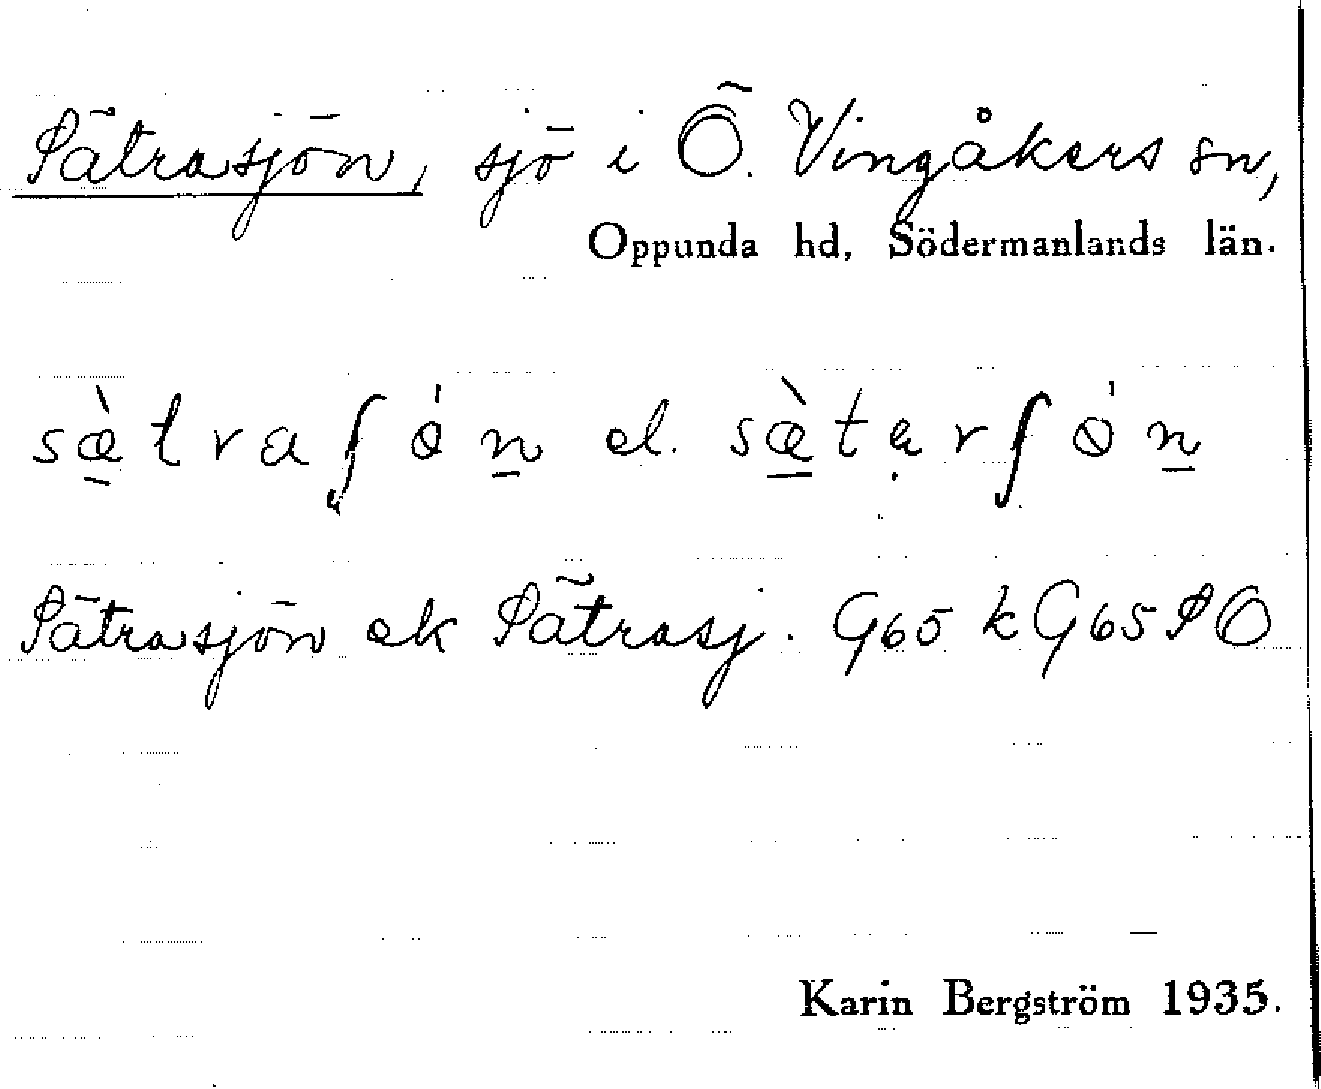 Sätrasjön, sjö i Ö. Vingåkers sn,
Oppunda hd, Södermanlands län.
sæ̀traʃǿn el. sæ̀tarʃǿn
Sätrasjön ek Sätrasj. G65 kG65SO
Karin Bergström 1935.